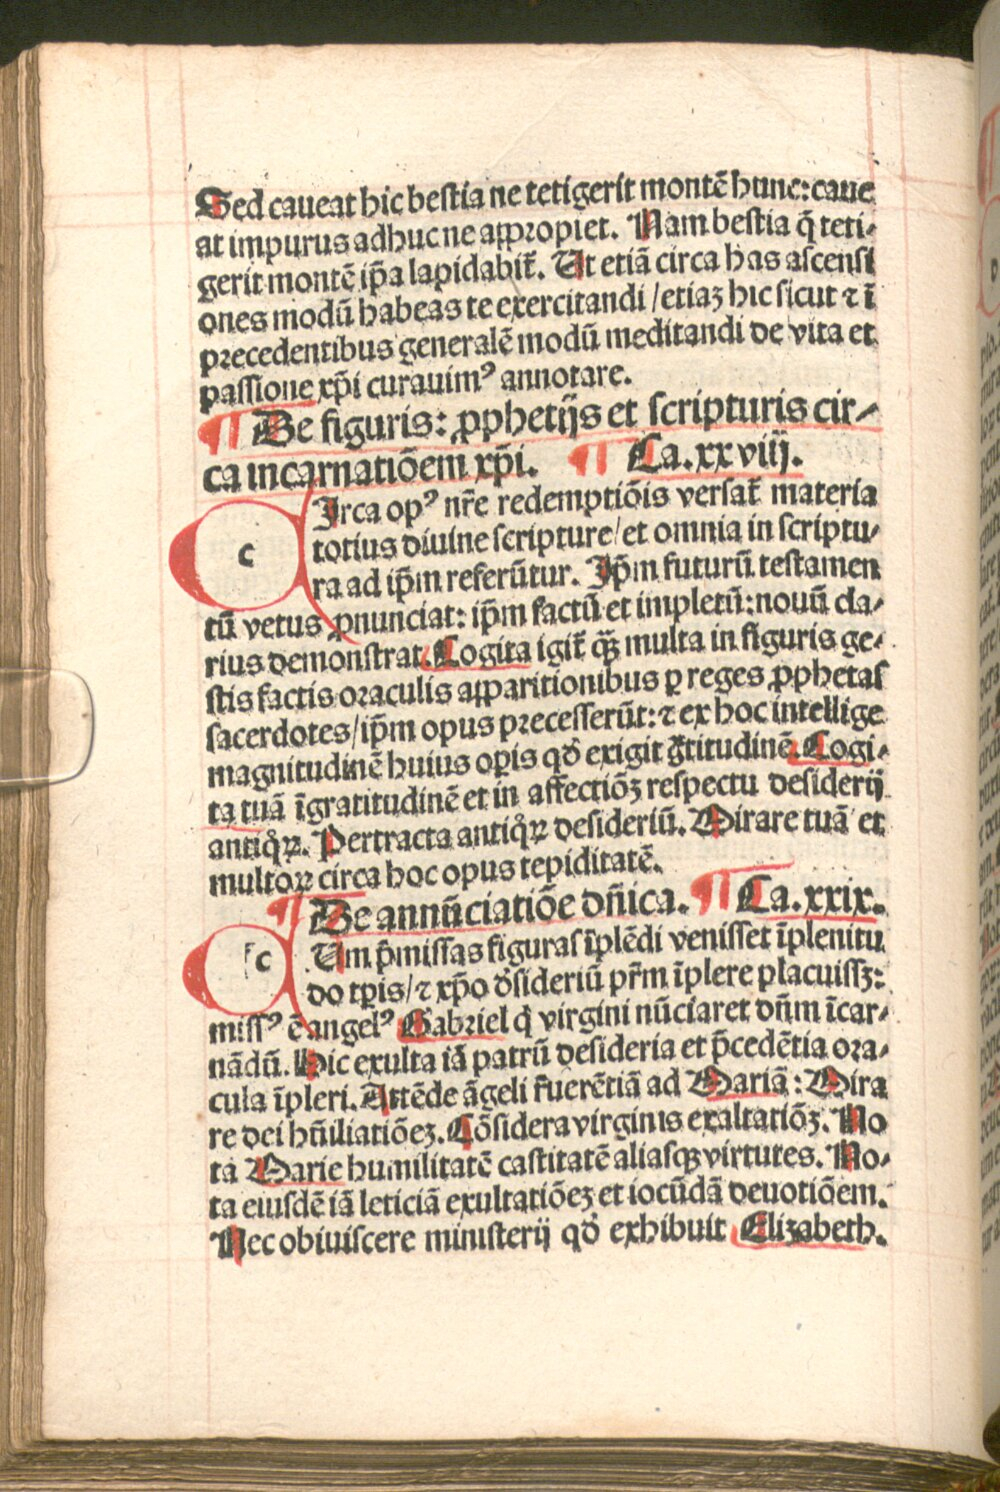 Sed caueat hic bestia ne tetigerit montē hunc: caue
at impurus adhuc ne appropiet. Nam bestia q̄ teti-
gerit montē ip̄a lapidabit̄. Ut etiā circa has ascensi
ones modū habeas te exercitandi / etiaꝫ hic sicut ⁊ ī
precedentibus generalē modū meditandi de vita et
passione xp̄i curauimꝰ annotare.
¶ De figuris: ꝓphetijs et scripturis cir-
ca incarnatiōem xp̄i. ¶ Ca. xxviij.
c Irca opꝰ nr̄e redemptiōis versat̄ materia
totius diuine scripture / et omnia in scriptu-
ra ad ip̄m referūtur. Ip̄m futurū testamen
tū vetus ꝓnunciat: ip̄m factū et impletū: nouū cla-
rius demonstrat. Cogita igit̄ qȝ̄ multa in figuris ge-
stis factis oraculis apparitionibus ꝑ reges ꝓphetas
sacerdotes / ip̄m opus precesserūt: ⁊ ex hoc intellige
magnitudinē huius oꝑis qd̓ exigit g̓titudinē. Cogi-
ta tuā īgratitudinē et in affectiōꝫ respectu desiderij
antiq̓ꝝ. Pertracta antiq̓ꝝ desideriū. Mirare tuā et
multoꝝ circa hoc opus tepiditatē.
¶ De annūciatiōe dn̄ica. ¶ Ca. xxix.
c Um p̄missas figuras īplēdi venisset īplenitu
do tꝑis / ⁊ xp̄o d̓sideriū pr̄m īplere placuissꝫ:
missꝰ ē angelꝰ Gabriel q̇ virgini nūciaret dn̄m īcar-
nādū. Hic exulta iā patrū desideria et p̄cedētia ora-
cula īpleri. Attēde āgeli r̄uerētiā ad Mariā: Mira
re dei hūiliatiōeꝫ. Cōsidera virginis exaltatiōꝫ. No
ta Marie humilitatē castitatē aliasqꝫ virtutes. No-
ta eiusdē iā leticiā exultatiōeꝫ et iocūdā deuotiōem.
Nec obiuiscere ministerij qd̓ exhibuit Elizabeth.